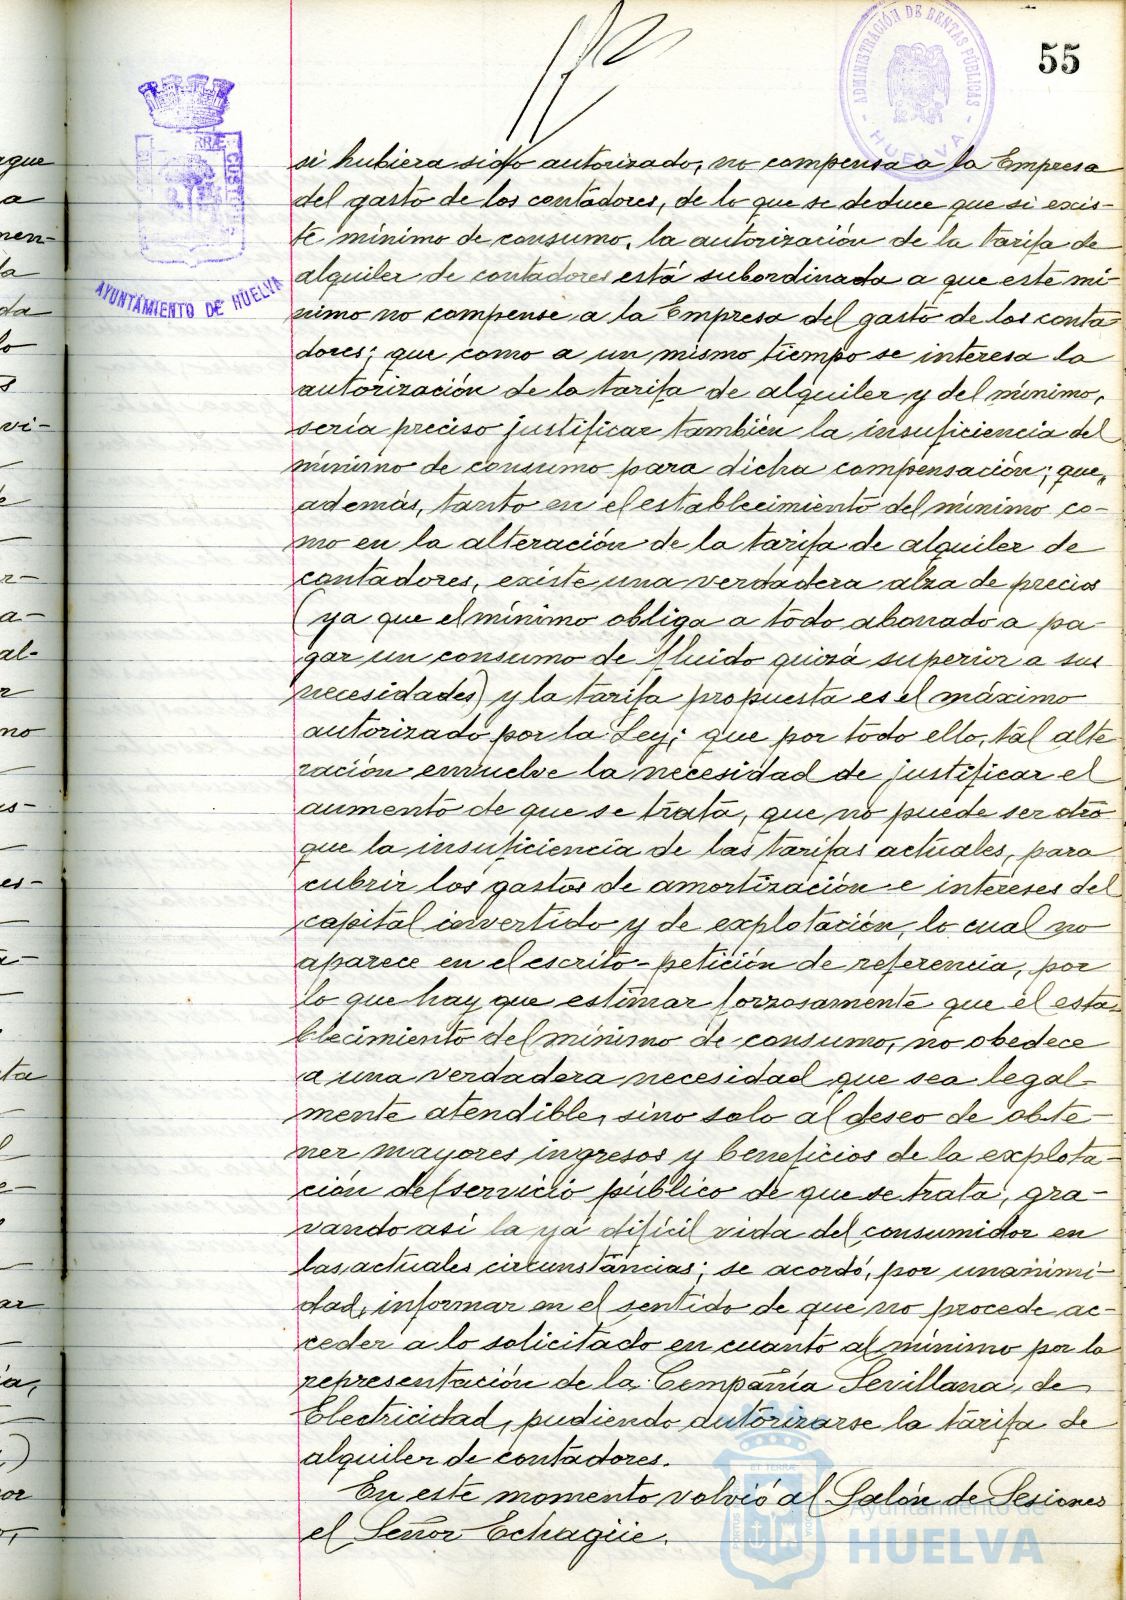 55
ADMINISTRACIÓN DE RENTAS PÚBLICAS
HUELVA
AYUNTAMIENTO DE HUELVA
si hubiera sido autorizado, no compensa a la Empresa
del gasto de los contadores, de lo que se deduce que si exis-
te mínimo de consumo, la autorización de la tarifa de
alquiler de contadores está subordinada a que este mí-
nimo no compense a la Empresa del gasto de los conta
dores; que como a un mismo tiempo se interesa la
autorización de la tarifa de alquiler y del mínimo,
sería preciso justificar también la insuficiencia del
mínimo de consumo para dicha compensación; que,
además, tanto en el establecimiento del mínimo co-
mo en la alteración de la tarifa de alquiler de
contadores, existe una verdadera alza de precios
(ya que el mínimo obliga a todo abonado a pa-
gar un consumo de fluido quizá superior a sus
necesidades) y la tarifa propuesta es el máximo
autorizado por la Ley; que por todo ello, tal alte
ración envuelve la necesidad de justificar el
aumento de que se trata, que no puede ser otro
que la insuficiencia de las tarifas actuales, para
cubrir los gastos de amortización e intereses del
capital invertido y de explotación, lo cual no
aparece en el escrito-petición de referencia, por
lo que hay que estimar forzosamente que el esta-
blecimiento del mínimo de consumo, no obedece
a una verdadera necesidad que sea legal-
mente atendible, sino solo al deseo de obte-
ner mayores ingresos y beneficios de la explota-
ción del servicio público de que se trata, gra-
vando así la ya difícil vida del consumidor en
las actuales circunstancias; se acordó, por unanimi-
dad, informar en el sentido de que no procede ac-
ceder a lo solicitado en cuanto al mínimo por la
representación de la Compañía Sevillana, de
Electricidad, pudiendo autorizarse la tarifa de
alquiler de contadores.
En este momento volvió al Salón de Sesiones
el Señor Echagüe.
Ayuntamiento de
HUELVA